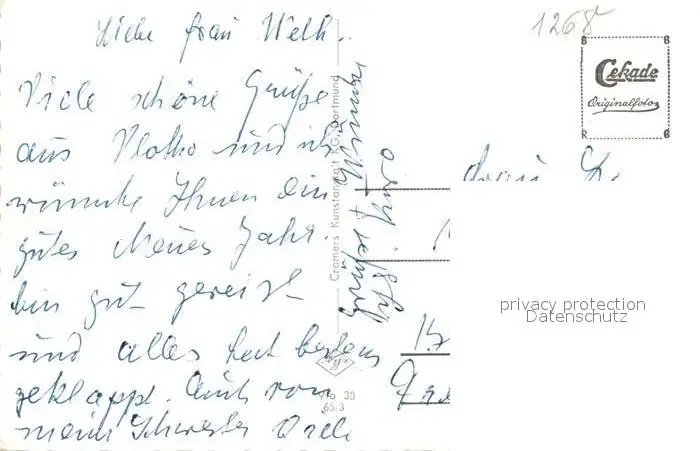 1268
Liebe Frau Welk.
Viele schöne Grüße
aus Vlotho und ich
wünsche Ihnen ein
gutes Neues Jahr.
bin gut gereist
und alles hat bestens
geklappt. Auch von
meiner Schwester
Cramers Kunstanstalt KG, Dortmund
30
65.3
Cekade
Originalfoto
Frau
privacy protection
Datenschutz